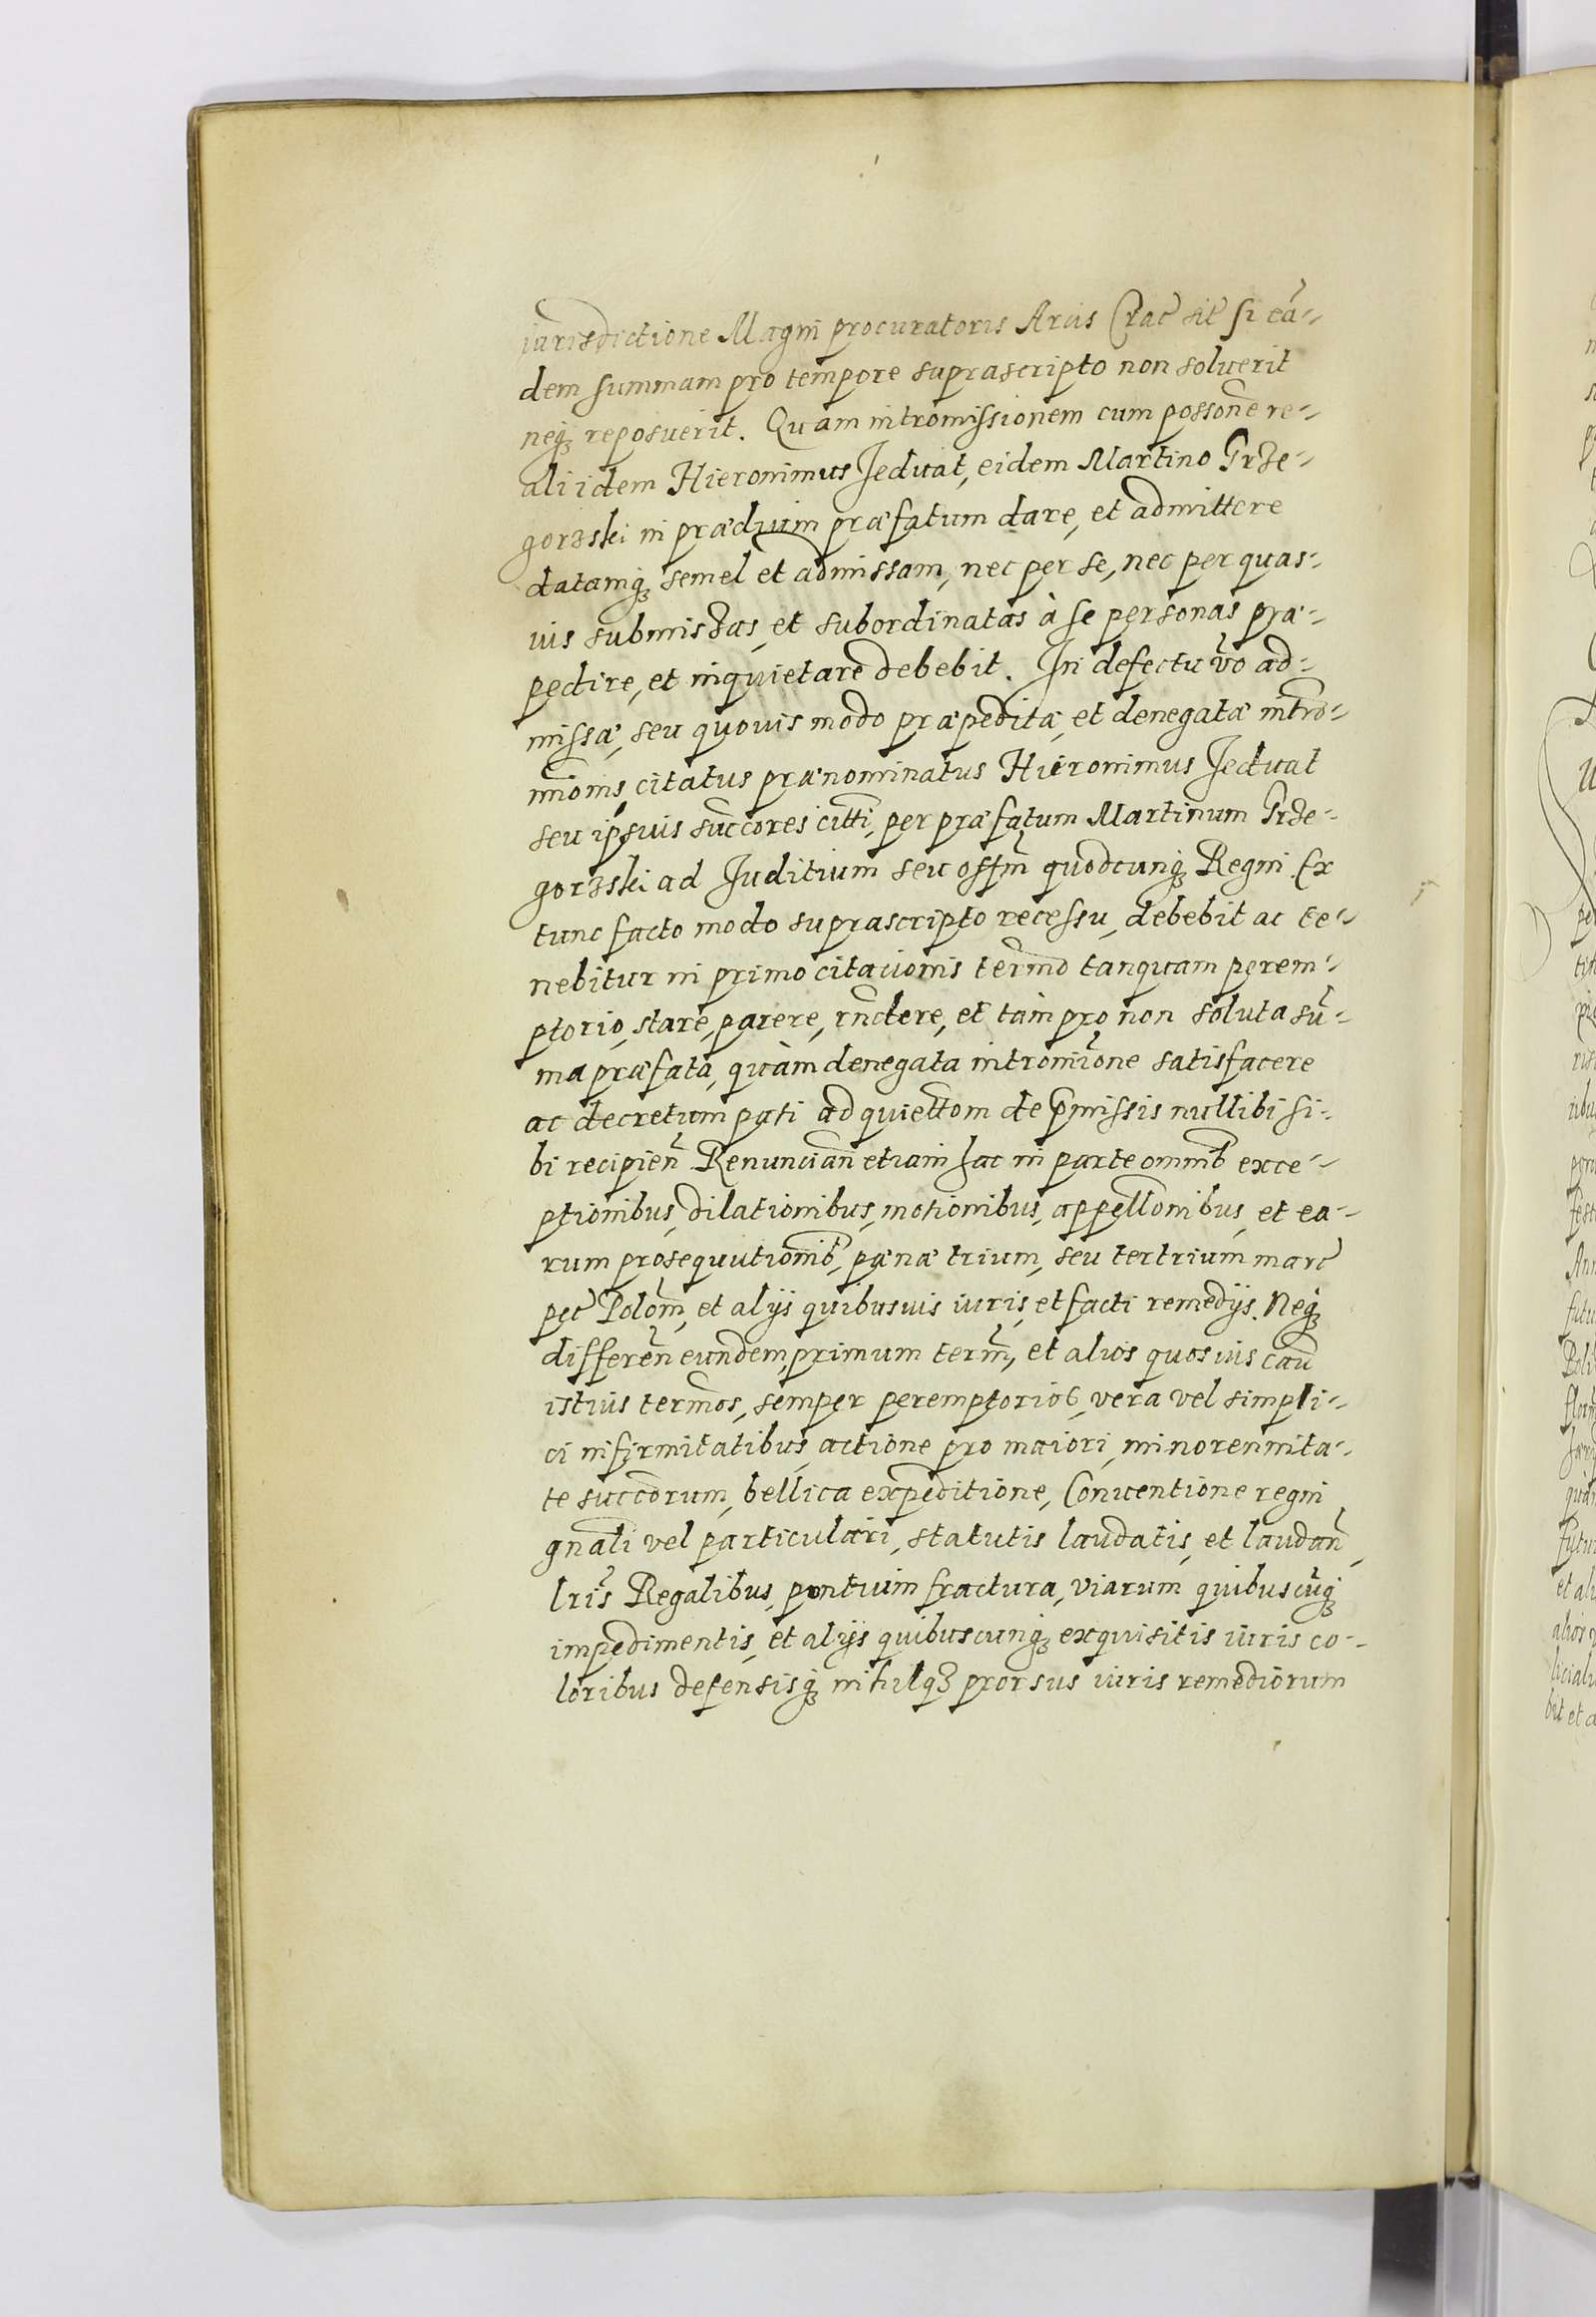 iurisdictione Magni procuratoris Arcis Crac̄ sit̄ si eā-
dem summam pro tempore suprascripto non soluerit
neq₃ reposuerit. Quam intromissionem cum possonē re-
ali idem Hieronimus Jeduat, eidem Martino Grze-
gorzski in prædium præfatum dare, et admittere
datamq₃ semel et admissam, nec per se, nec per quas-
uis submissas, et subordinatas à se personas præ-
pedire, et inquietare debebit. In defectu v̄o ad-
missæ, seu quouis modo præpeditæ, et denegatæ intro-
mīonis, citatus prænominatus Hieronimus Jeduat
seu ipsuis suc̄cores citti, per præfatum Martinum Grze-
gorzski ad Juditium seu offm̄ quodcunq₃ Regni Ex
tunc facto modo suprascripto recessu, debebit ac te-
nebitur in primo citationis termō tanquam perem-
ptorio, stare, parere, rn̄dere, et tàm pro non soluta sū-
ma præfata, quàm denegata intromīone satisfacere
ac decretum pati ad quiettom de p̄missis nullibi si-
bi recipien̄ Renuncian̄ etiam hac in parte omnib̄ exce-
ptionibus, dilationibus, motionibus, appellonibus, et ea-
rum prosequutionib̄, pænæ trium, seu ter trium marc̄
pec̄ Polom̄, et alijs quibusuis iuris, et facti remedijs. Neq₃
differen̄ eundem, primum term̄, et alios quosuis cau̅
istius termōs, semper peremptorios, vera vel simpli-
ci infirmitatibus, actione pro maiori, minorennita-
te succorum, bellica expeditione, Conuentione regni
gnali vel particulari, statutis laudatis, et laudan̄,
lris̄ Regalibus, pontium fractura, viarum quibuscūq₃
impedimentis, et alijs quibuscunq₃ exquisitis iuris co-
loribus defensisq₃ nihilq₃ prorsus iuris remediorum